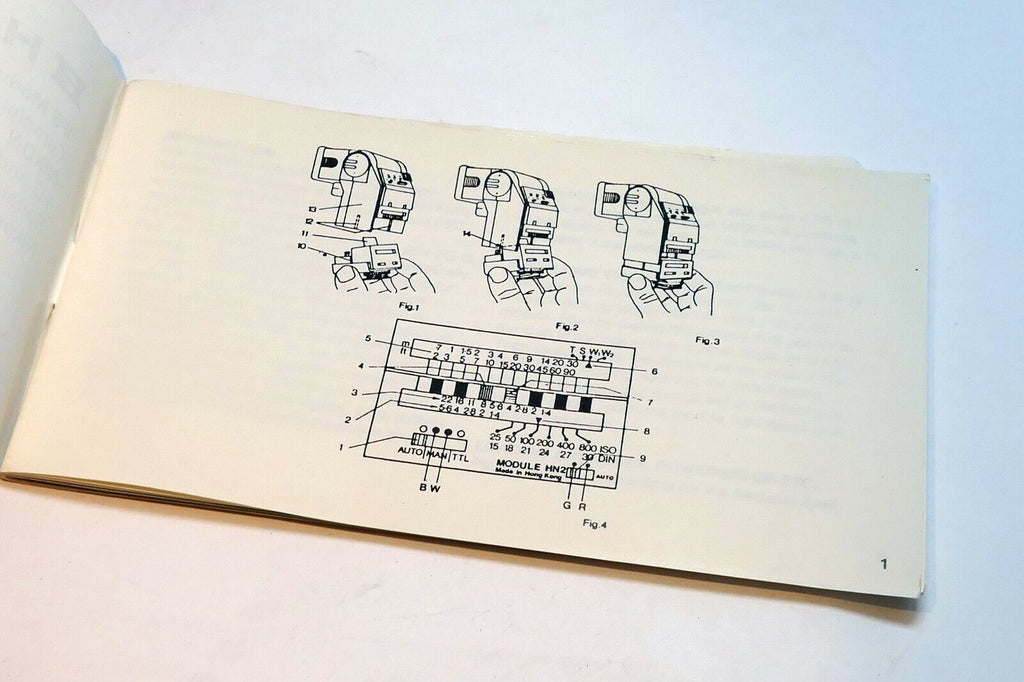 13
12
11
10
14
Fig.1
Fig.2
Fig.3
5
4
3
2
1
m .7 1 1·5 2 3 4 6 9 14 20 30 T S W1 W2
ft 2 3 5 7 10 15 20 30 45 60 90
6
7
8
9
←22 16 11 8 5·6 4 2·8 2 1·4
←5·6 4 2·8 2 1·4
25 50 100 200 400 800 ISO
15 18 21 24 27 30 DIN
AUTO MAN TTL
MODULE HN2
Made in Hong Kong
AUTO
B W
G R
Fig.4
1